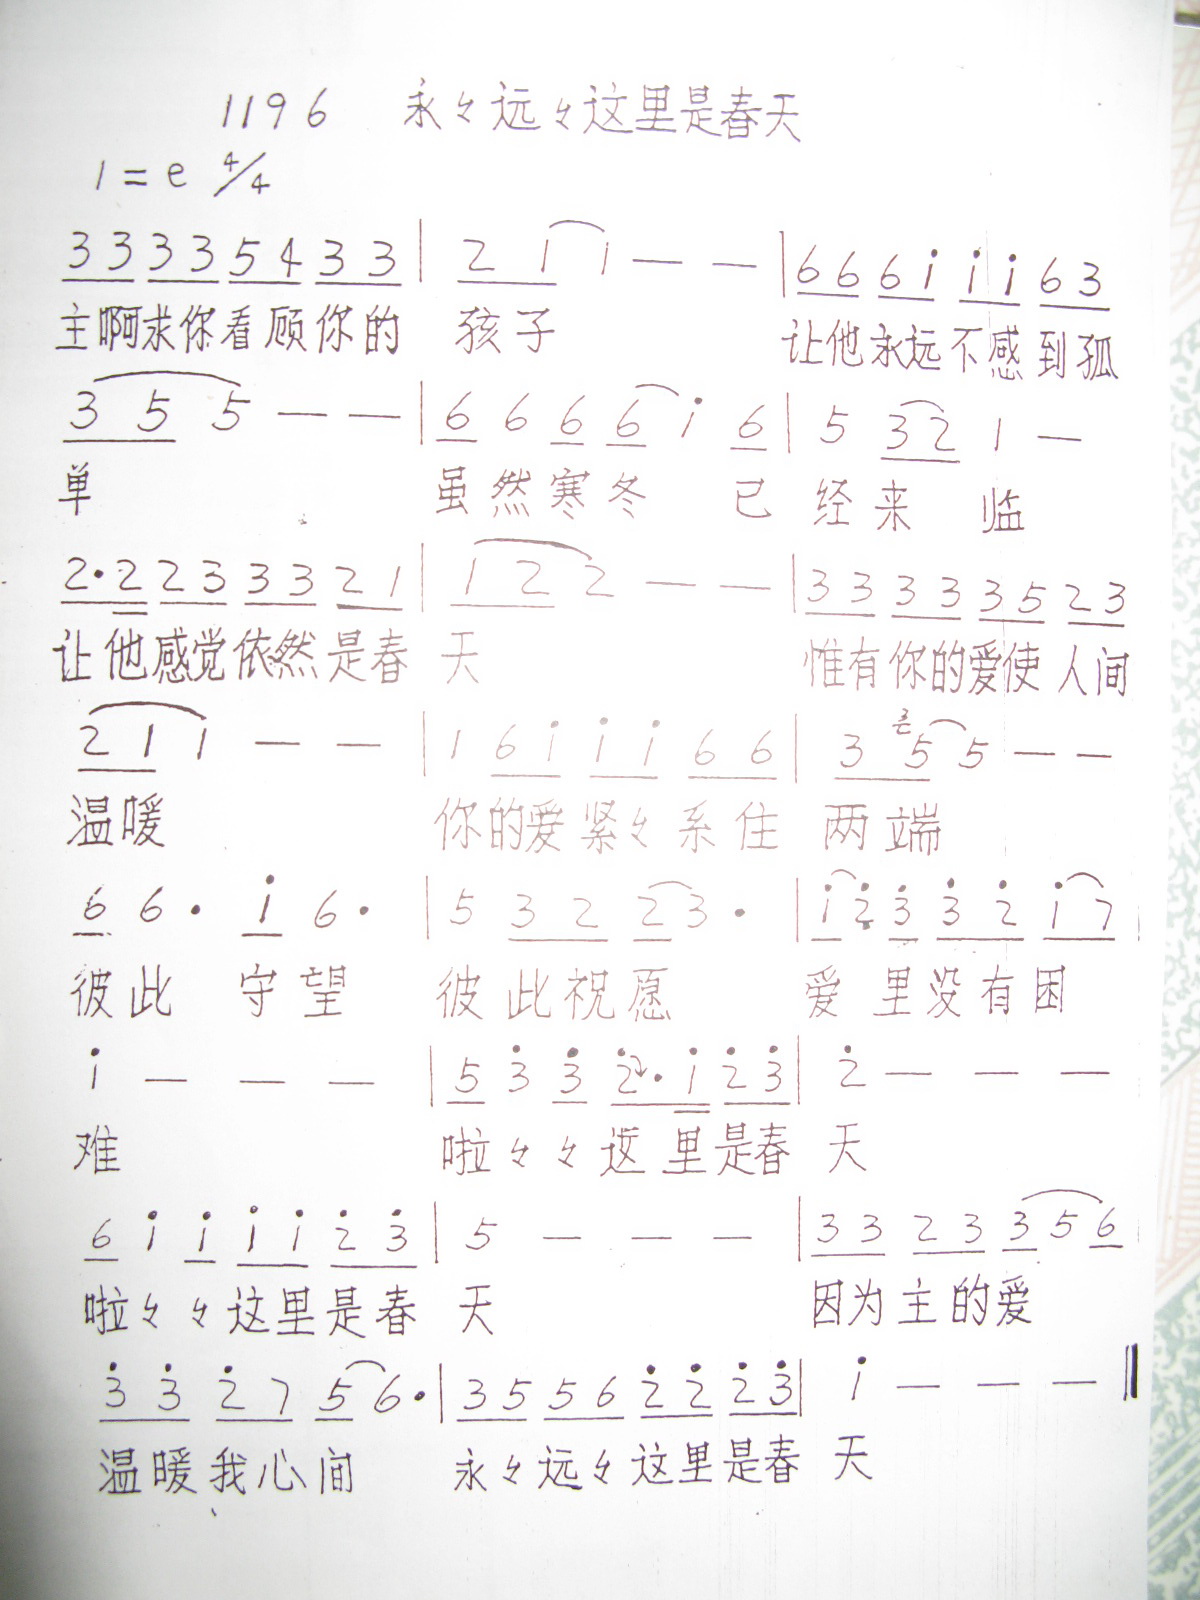 1196 永々远々这里是春天
1=e 4/4
33 33 54 33 | 2 1 1 — — | 66 6i̇ i̇i̇ 63
主啊求你看顾你的 孩子 让他永远不感到孤
3 5 5 — — | 6 6 6 6 i̇ 6 | 5 32 1 —
单 虽然寒冬 已 经来 临
2·2 23 33 21 | 1 2 2 — — | 33 33 35 23
让他感觉依然是春 天 惟有你的爱使人间
2 1 1 — — | 1 6i̇ i̇i̇ 66 | 3 5 5 — —
温暖 你的爱紧々系住 两端
6 6· i̇ 6· | 5 32 23· | i̇2̇ 3̇ 3̇2̇ i̇7
彼此 守望 彼此祝愿 爱里没有困
i̇ — — — | 5 3̇ 3̇ 2̇·i̇ 2̇3̇ | 2̇ — — —
难 啦々々这里是春 天
6 i̇ i̇ i̇i̇ 2̇3̇ | 5 — — — | 33 23 3 5 6
啦々々这里是春 天 因为主的爱
3̇3̇ 2̇7 56· | 35 56 2̇2̇ 2̇3̇ | i̇ — — — ‖
温暖我心间 永々远々这里是春 天